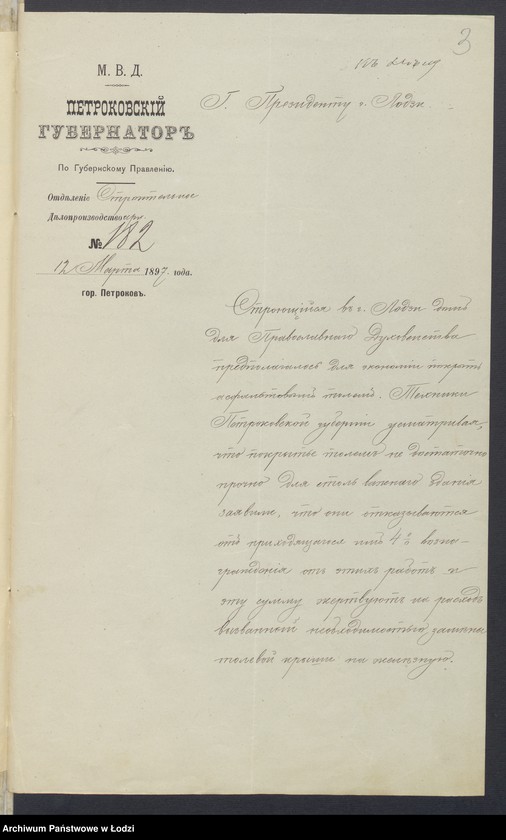 3
М. В. Д.
ПЕТРОКОВСКІЙ
ГУБЕРНАТОРЪ
По Губернскому Правленію.
Отдѣленіе Строительное
Дѣлопроизводство
№ 182
12 Марта 1897 года.
гор. Петроковъ.
Г. Президенту г. Лодзи
Строющійся въ г. Лодзи домъ
для Православнаго Духовенства
предполагалось для экономіи покрыть
асфальтовымъ толемъ. Техники
Петроковской губерніи усматривая,
что покрытіе толемъ не достаточно
прочно для столь важнаго зданія
заявили, что они отказываются
отъ приходящагося имъ 4% возна-
гражденія отъ этихъ работъ и
эту сумму жертвуютъ на расходъ
вызванный необходимостью замены
толевой крыши на желѣзную.
Archiwum Państwowe w Łodzi